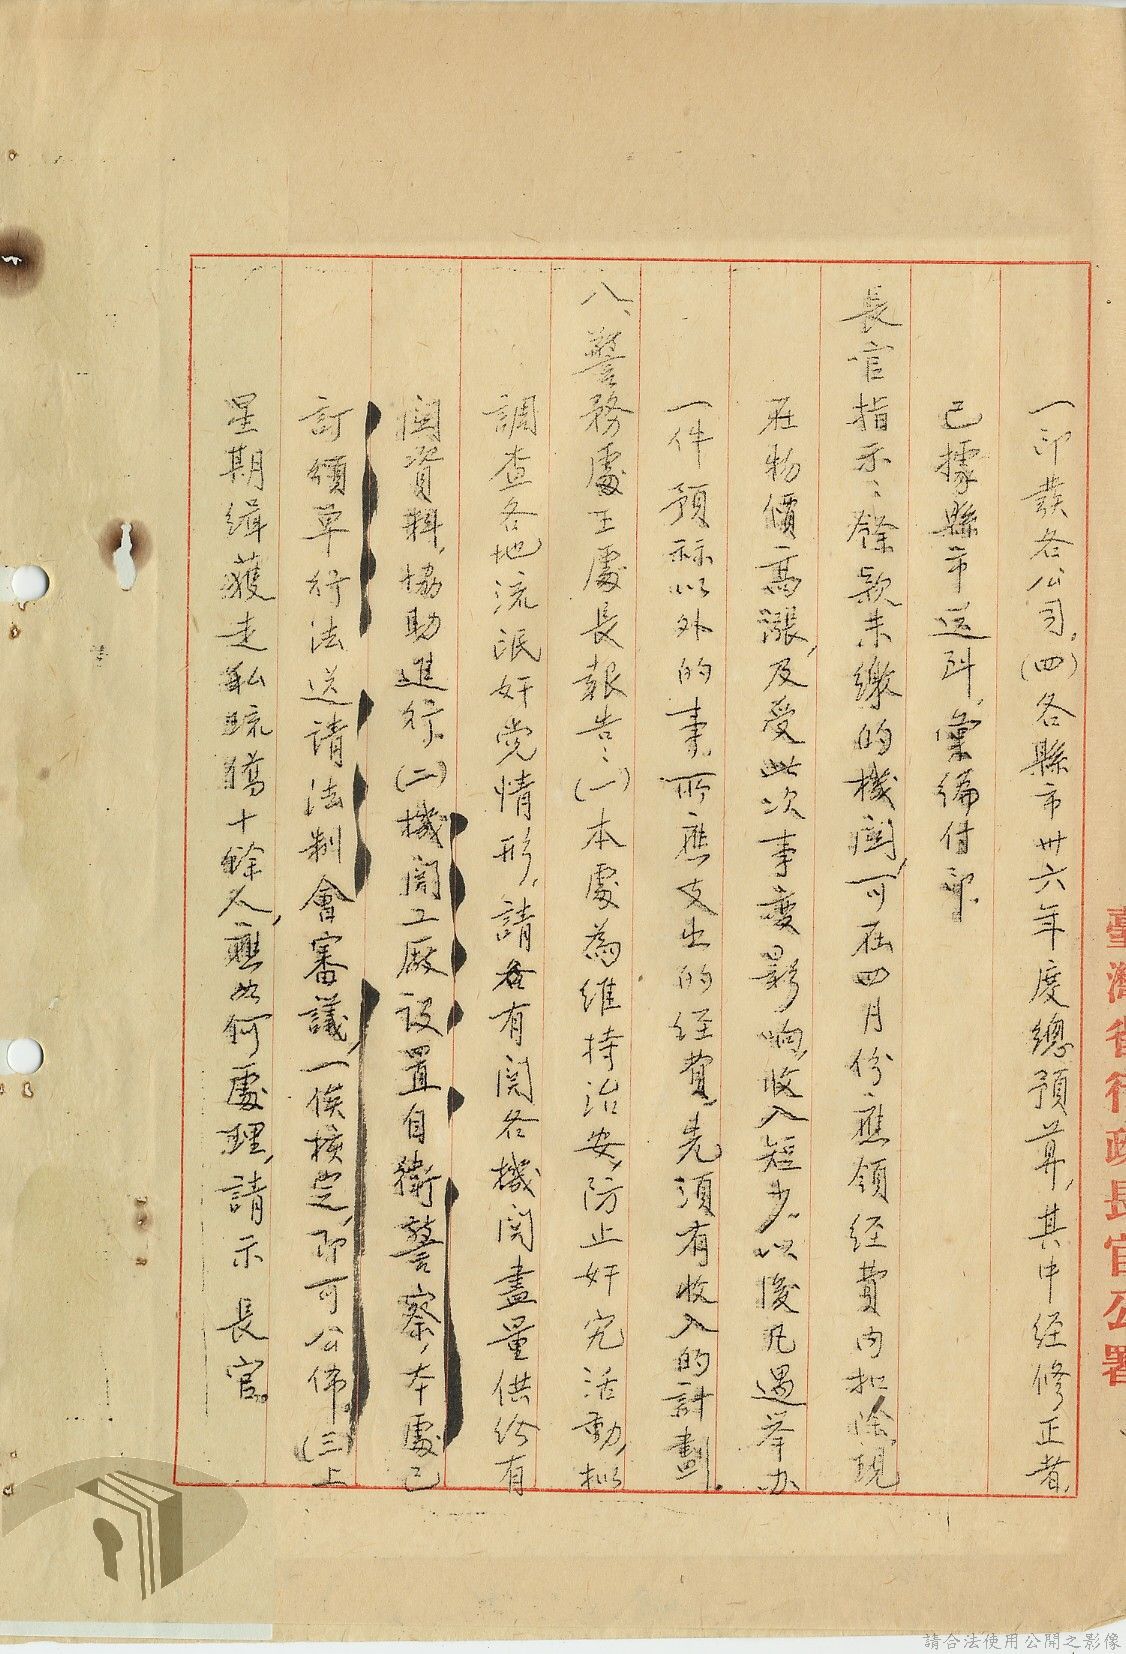 一印發各公司。(四)各縣市卅六年度總預算,其中經修正者,
已據縣市送到,彙編付印。
長官指示:餘款未繳的機関,可在四月份應領經費内扣除,現
在物價高漲,及受此次事變影响,收入短少。以後凡遇举办
一件預祘以外的事,所應支出的経費,先須有收入的計劃。
八、警務處王處長報告:(一)本處為維持治安,防止奸宄活動,拟
調查各地流氓奸党情形,請各有関各機関盡量供給有
関資料,協助進行。(二)機関工厰設置自衛警察,本處已
訂頒單行法送請法制會審議,一俟核定,即可公佈。(三)上
星期缉獲走私硫磺十餘人,應如何處理,請示 長官。
臺灣省行政長官公署
請合法使用公開之影像